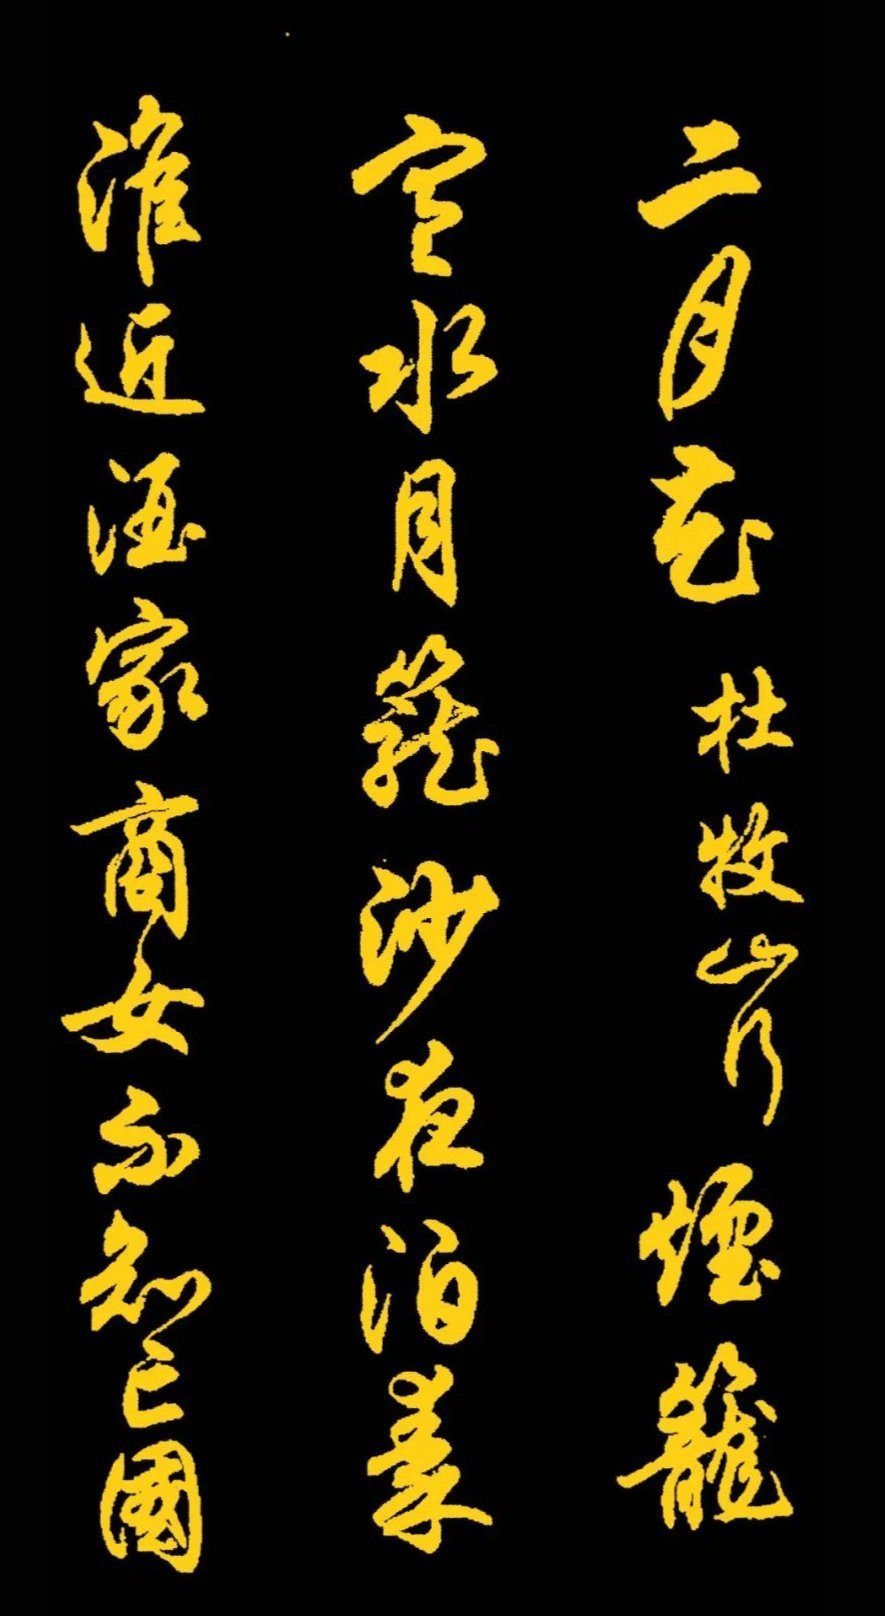 二月花 杜牧山行 煙籠
寒水月籠沙夜泊秦
淮近酒家商女不知亡國